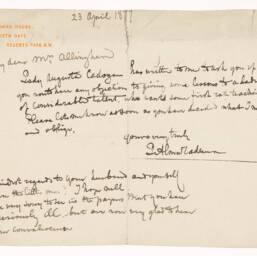 HOUSE.
NORTH GATE,
REGENTS PARK. N.W.
23 April 18
my dear Mrs Allingham
Lady Augusta Cadogan has written to me to ask you if
you would have any objection to giving some lessons to a lady
of considerable talent, who wants some first rate teaching
Please let me know as soon as you have decided what I am
and oblige.
yours very truly
L Alma Tadema
kindest regards to your husband and yourself
the little one. I hope
very sorry to see in the papers that you have
seriously ill, but are now very glad to hear
your convalescence